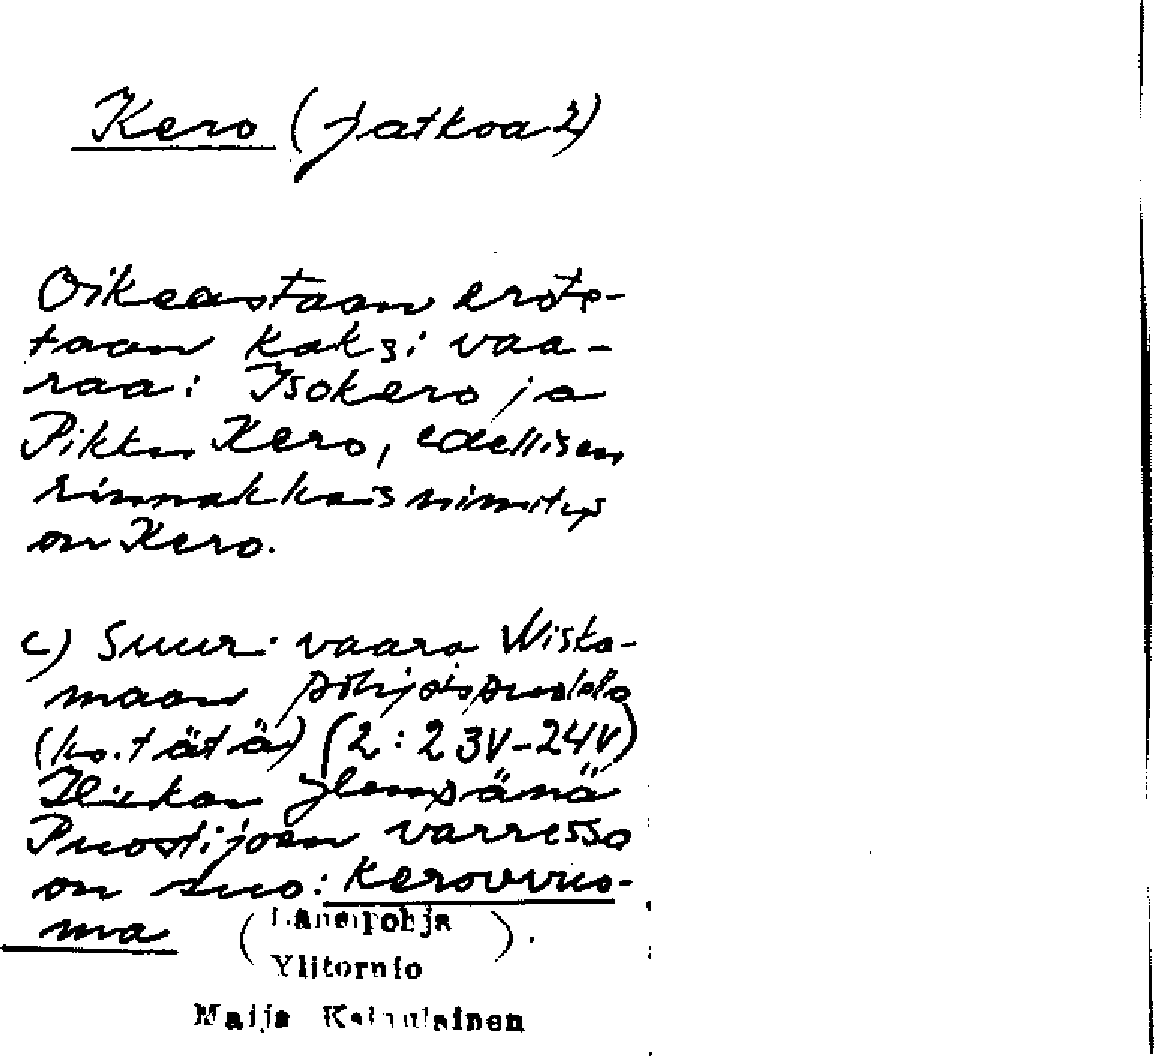 Kero (jatkoa 2)
Oikeastaan erote-
taan kaksi vaa-
raa: Isokero ja
Pikku Kero, edellisen
rinnakkaisnimitys
on Kero.
c) Suuri vaara
maan pohjoispuolella
(ks. tätä) (2: 23V-24V)
Hiukan ylempänä
Puostijoen varressa
on suo: Kerovvuo-
ma (Länsipohja).
Ylitornio
Maija